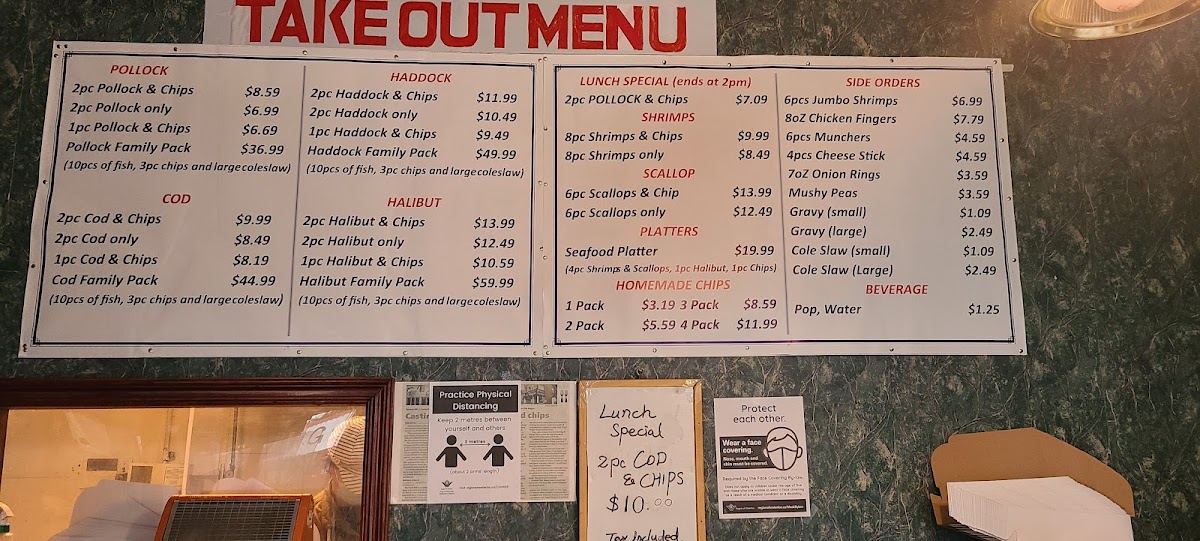 TAKE OUT MENU
POLLOCK
2pc Pollock & Chips $8.59
2pc Pollock only $6.99
1pc Pollock & Chips $6.69
Pollock Family Pack $36.99
(10pcs of fish, 3pc chips and large coleslaw)
COD
2pc Cod & Chips $9.99
2pc Cod only $8.49
1pc Cod & Chips $8.19
Cod Family Pack $44.99
(10pcs of fish, 3pc chips and large coleslaw)
HADDOCK
2pc Haddock & Chips $11.99
2pc Haddock only $10.49
1pc Haddock & Chips $9.49
Haddock Family Pack $49.99
(10pcs of fish, 3pc chips and large coleslaw)
HALIBUT
2pc Halibut & Chips $13.99
2pc Halibut only $12.49
1pc Halibut & Chips $10.59
Halibut Family Pack $59.99
(10pcs of fish, 3pc chips and large coleslaw)
LUNCH SPECIAL (ends at 2pm)
2pc POLLOCK & Chips $7.09
SHRIMPS
8pc Shrimps & Chips $9.99
8pc Shrimps only $8.49
SCALLOP
6pc Scallops & Chip $13.99
6pc Scallops only $12.49
PLATTERS
Seafood Platter $19.99
(4pc Shrimps & Scallops, 1pc Halibut, 1pc Chips)
HOMEMADE CHIPS
1 Pack $3.19 3 Pack $8.59
2 Pack $5.59 4 Pack $11.99
SIDE ORDERS
6pcs Jumbo Shrimps $6.99
8oZ Chicken Fingers $7.79
6pcs Munchers $4.59
4pcs Cheese Stick $4.59
7oZ Onion Rings $3.59
Mushy Peas $3.59
Gravy (small) $1.09
Gravy (large) $2.49
Cole Slaw (small) $1.09
Cole Slaw (Large) $2.49
BEVERAGE
Pop, Water $1.25
Practice Physical
Distancing
Keep 2 metres between
yourself and others
2 metres
(about 2 arms length)
Lunch
Special
2pc COD
& CHIPS
$10.00
Tax included
Protect
each other.
Wear a face
covering.
Nose, mouth and
chin must be covered.
Required by the Face Covering By-law.